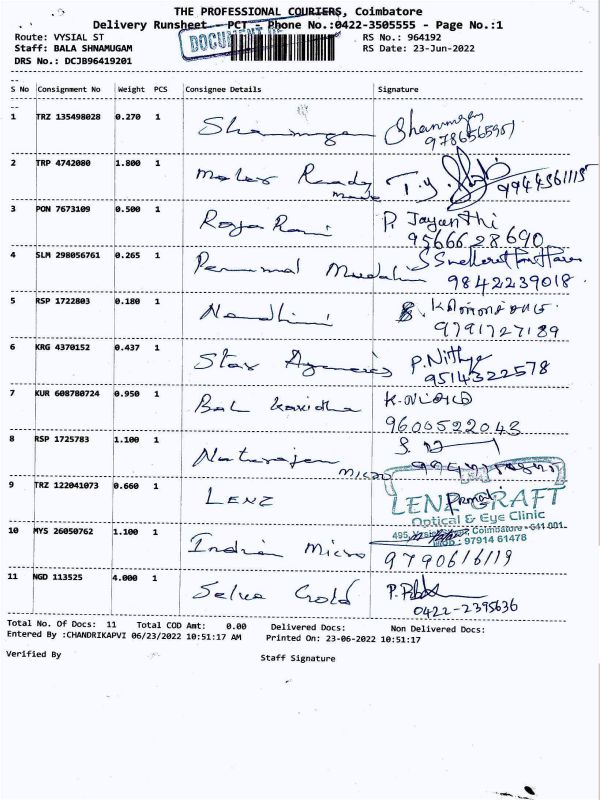 THE PROFESSIONAL COURIERS, Coimbatore
Delivery Runsheet - PCT - Phone No.:0422-3505555 - Page No.:1
Route: VYSIAL ST RS No.: 964192
Staff: BALA SHNAMUGAM DOCUMENT RS Date: 23-Jun-2022
DRS No.: DCJB96419201
S No Consignment No Weight PCS Consignee Details Signature
1 TRZ 135498028 0.270 1 Shanmugam Shanmugam
9786565907
2 TRP 4742080 1.800 1 Motex Ready made 9944361115
3 PON 7673109 0.500 1 Roja Rani P. Jayanthi
9566628690
4 SLM 298056761 0.265 1 Perumal Mudali
9842239018
5 RSP 1722803 0.180 1 Nandhini
9791727189
6 KRG 4370152 0.437 1 Star Agencies P. Nithya
9514322578
7 KUR 608780724 0.950 1 Bal Kavidha
9600522043
8 RSP 1725783 1.100 1 Natarajan Micro
9 TRZ 122041073 0.660 1 LENZ LENZ CRAFT
Optical & Eye Clinic
495, Coimbatore - 641 001.
Mob : 97914 61478
10 MYS 26050762 1.100 1 Indian Micro 9790616119
11 NGD 113525 4.000 1 Selva Gold
0422-2395636
Total No. Of Docs: 11 Total COD Amt: 0.00 Delivered Docs: Non Delivered Docs:
Entered By :CHANDRIKAPVI 06/23/2022 10:51:17 AM Printed On: 23-06-2022 10:51:17
Verified By Staff Signature